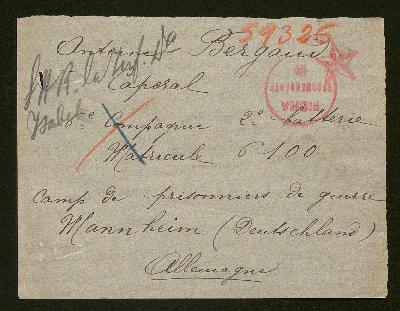 59325
Antoine Bergaud
Caporal
Compagnie 2e batterie
Matricule 6100
Camp de prisonniers de guerre
Mannheim (Deutschland)
Allemagne
FICHA